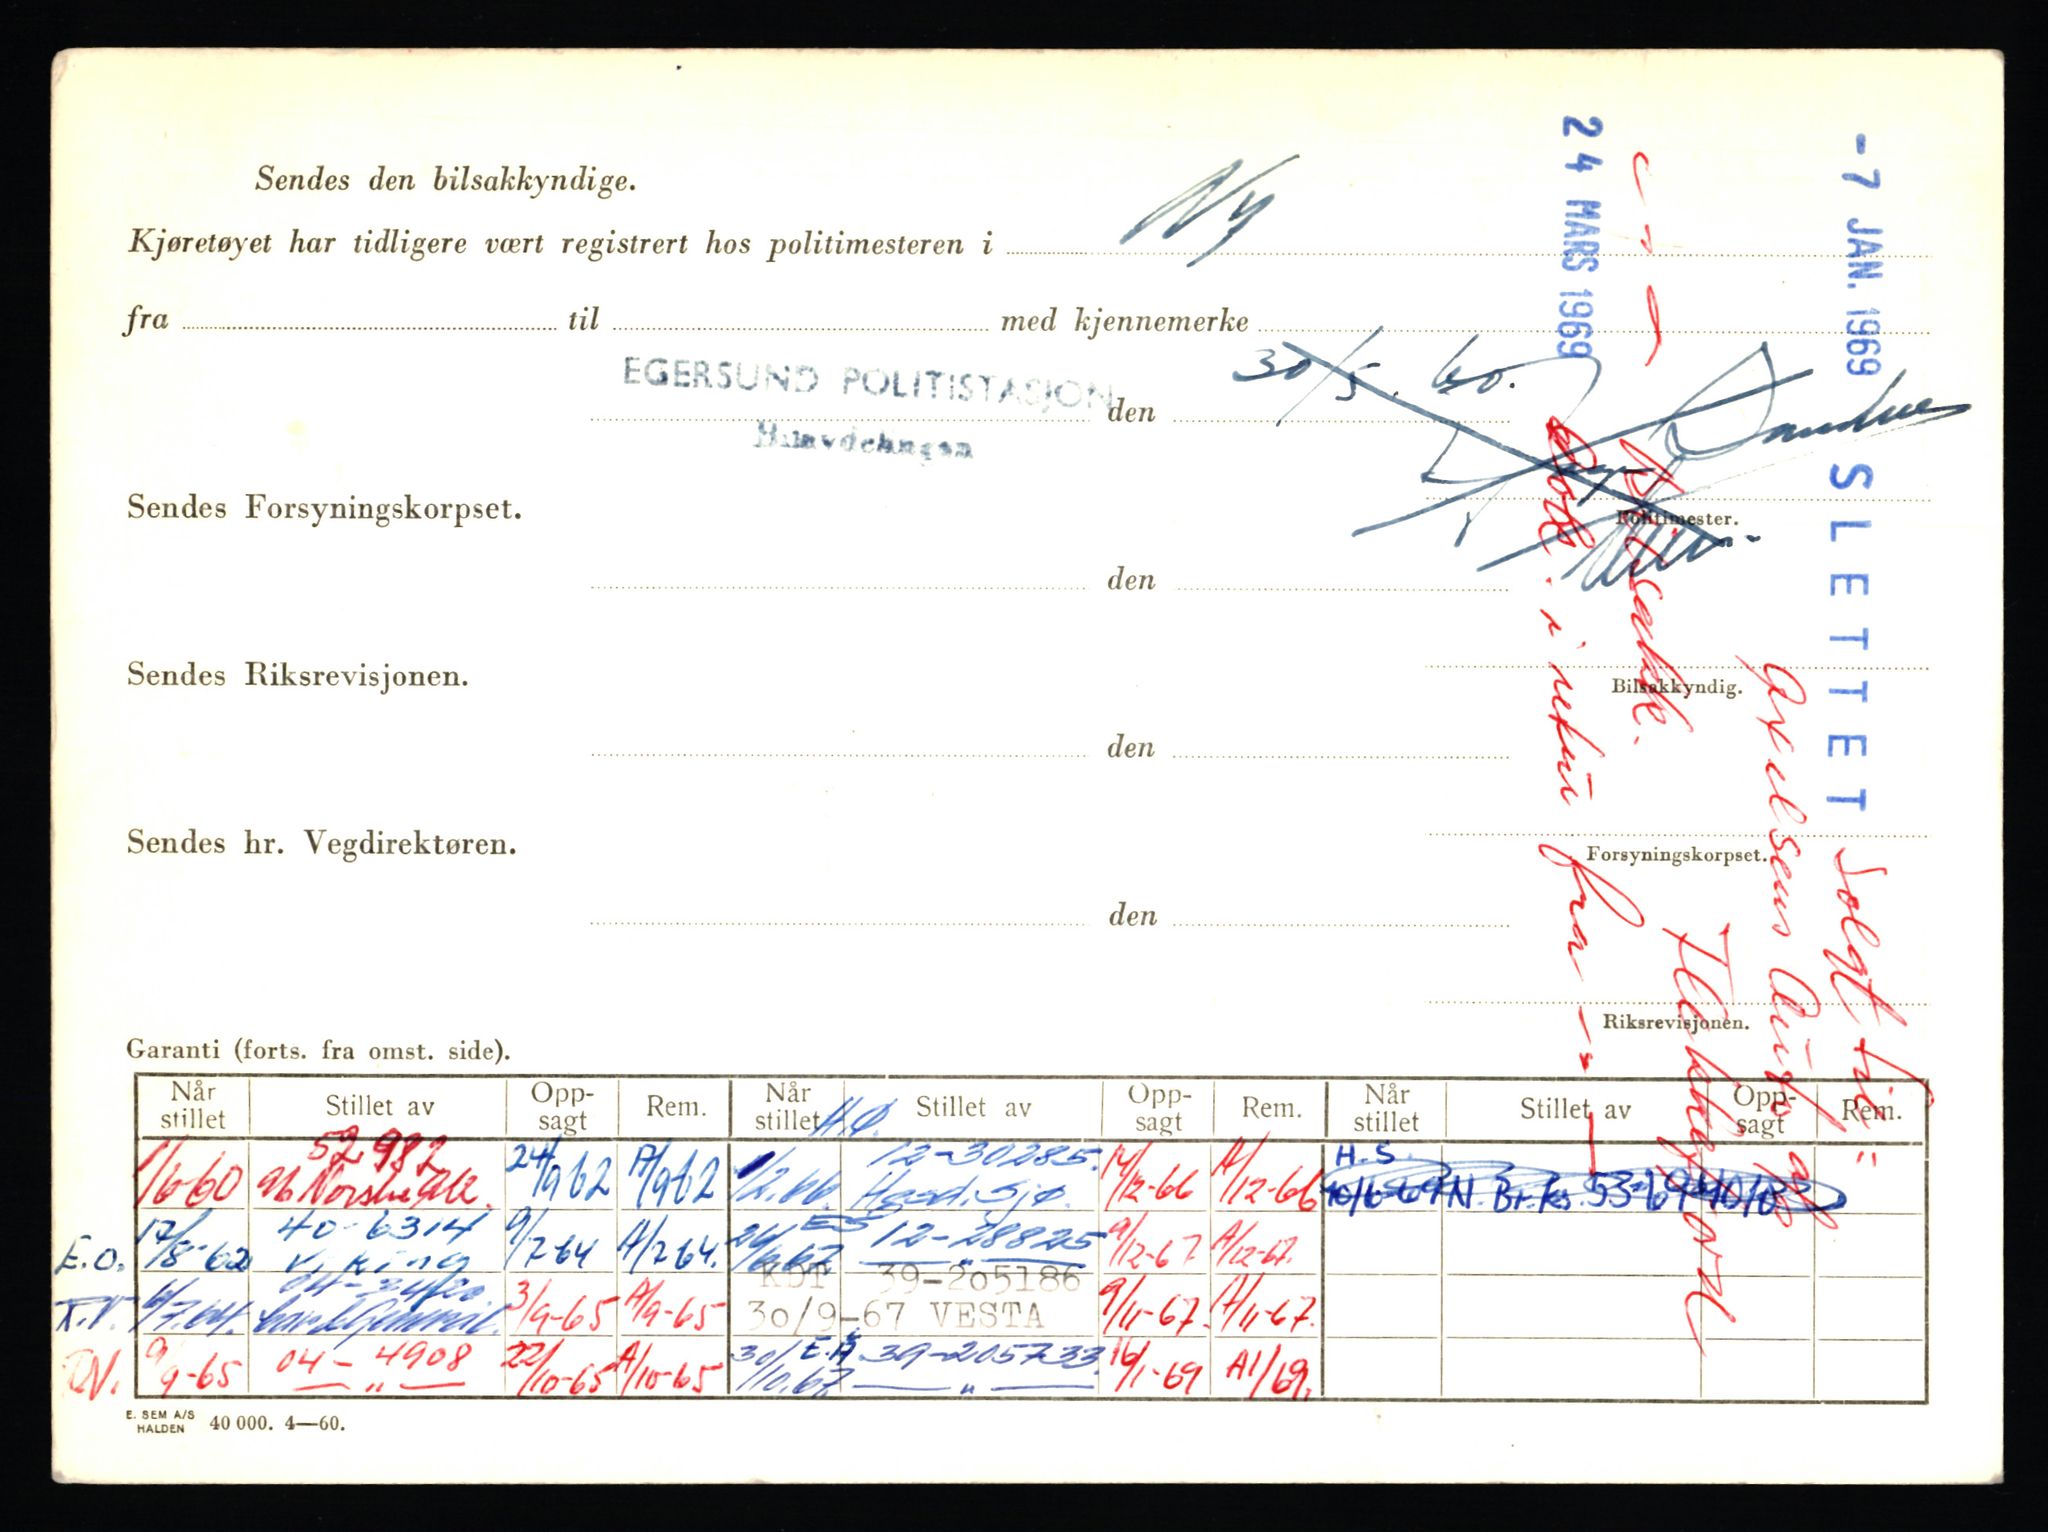 Sendes den bilsakkyndige.
Kjøretøyet har tidligere vært registrert hos politimesteren i Ny
fra til med kjennemerke
EGERSUND POLITISTASJON den 30/5. 60.
Bilavdelingen
Politimester.
Sendes Forsyningskorpset.
den
Bilsakkyndig.
Sendes Riksrevisjonen.
den
Forsyningskorpset.
Sendes hr. Vegdirektøren.
den
Riksrevisjonen.
24 MARS 1969
-7 JAN. 1969 SLETTET
Solgt til:
Axelsens Auto
Flekkefjord
i retur fra
Garanti (forts. fra omst. side).
Når stillet Stillet av Opp-sagt Rem. Når stillet Stillet av Opp-sagt Rem. Når stillet Stillet av Opp-sagt Rem.
1/6-60 52982 Norske 24/9 62 A/9 62 1/2.66 H.Ø. 12-30285. 14/12-66 A/12-66 H.S. 10/6-69 N. 53-69
E.O. 17/8-62 40-6314 Viking 9/7 64 A/7 64. 12-28825 — " — 9/12-67 A/12-67.
6/7.64. 3/9-65 A/9-65 KDT 39-205186
30/9-67 VESTA 9/11-67. A/11-67.
9/9-65 04-4908 — " — 22/10-65 A/10-65 30/10.67 39-205733. — " — 16/1-69 A1/69.
E. SEM A/S
HALDEN 40 000. 4—60.